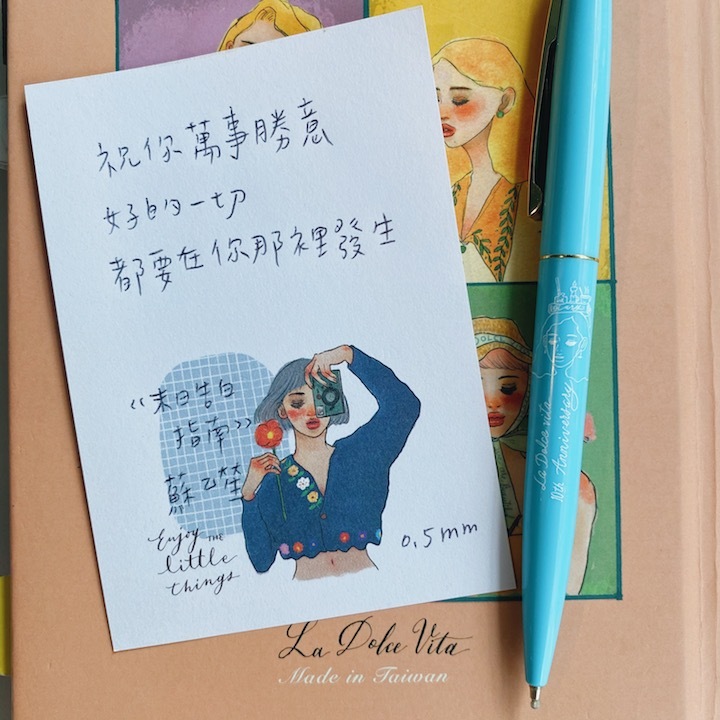 祝你萬事勝意
好的一切
都要在你那裡發生
《末日告白
指南》
蘇乙笙
Enjoy THE
little
things
0.5mm
La Dolce Vita
Made in Taiwan
La Dolce Vita
10th Anniversary